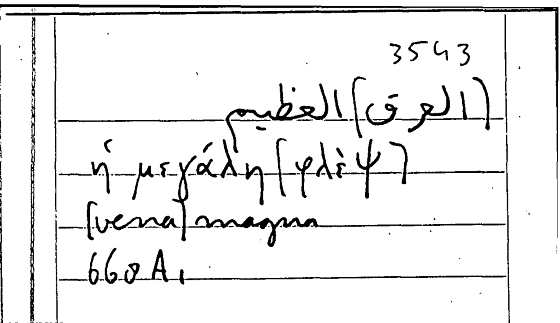 3543
(العرق) العظيم
ἡ μεγάλη [φλέψ]
[vena] magna
668 A.